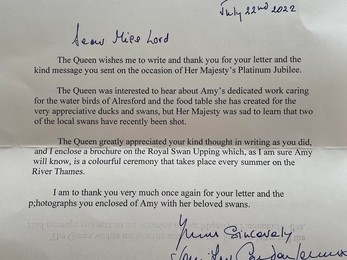 July 22nd 2022
Dear Miss Lord
The Queen wishes me to write and thank you for your letter and the
kind message you sent on the occasion of Her Majesty's Platinum Jubilee.
The Queen was interested to hear about Amy's dedicated work caring
for the water birds of Alresford and the food table she has created for the
very appreciative ducks and swans, but Her Majesty was sad to learn that two
of the local swans have recently been shot.
The Queen greatly appreciated your kind thought in writing as you did,
and I enclose a brochure on the Royal Swan Upping which, as I am sure Amy
will know, is a colourful ceremony that takes place every summer on the
River Thames.
I am to thank you very much once again for your letter and the
p;hotographs you enclosed of Amy with her beloved swans.
Yours sincerely